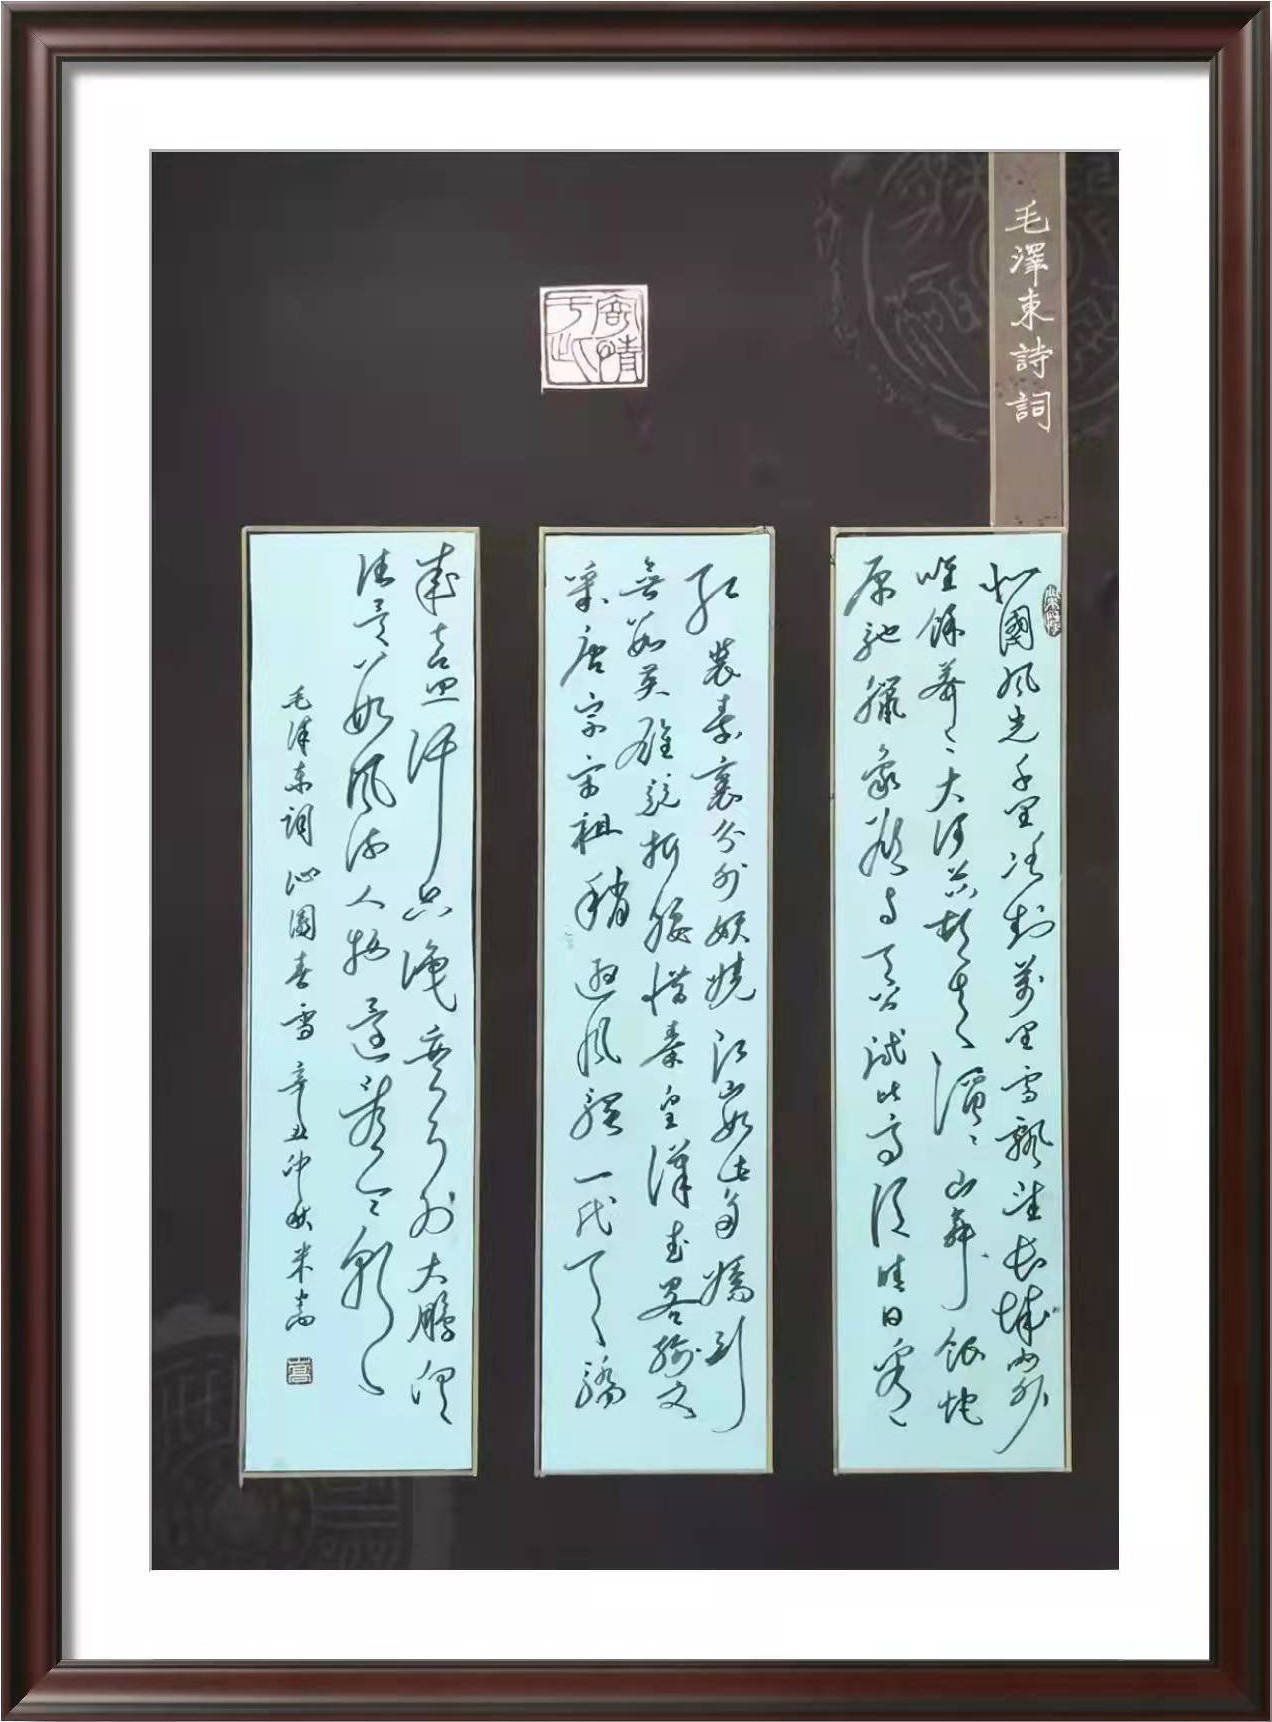 毛澤東詩詞
北國風光千里冰封萬里雪飄望長城內外
唯餘莽々大河上下頓失滔々山舞銀蛇
原馳臘象欲與天公試比高須晴日看
紅裝素裹分外妖嬈江山如此多嬌引
無數英雄競折腰惜秦皇漢武略輸文
采唐宗宋祖稍遜風騷一代天驕
成吉思汗只識彎弓射大鵰俱
往矣數風流人物還看今朝
毛澤东詞沁園春雪辛丑仲秋米嵩
嵩